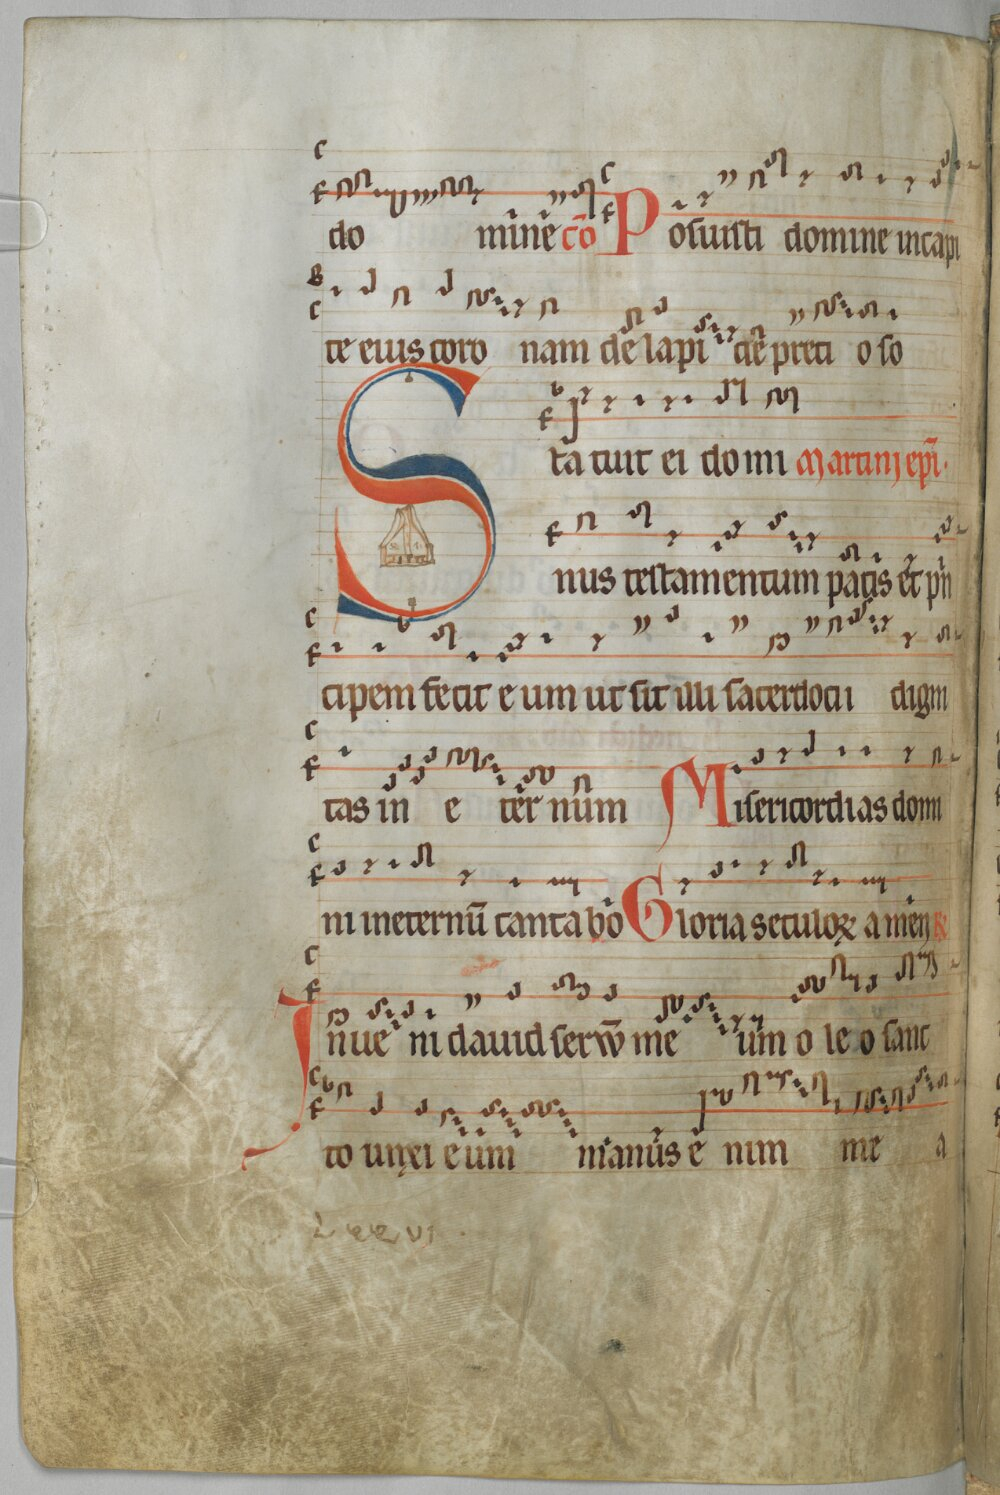 do mine co Posuisti domine in capi
te eius coro nam de lapi de preci o so
Sta tuit ei do mi Martinj epi.
nus testamentum pacis et prin
cipem fecit e um ut sit illi sacerdocii digni
tas in e ter num Misericordias domi
ni in eternu cantabo Gloria seculorꝝ amen
Inue ni dauid seruū me um o le o sanc
to unxi e um manus e nim me a